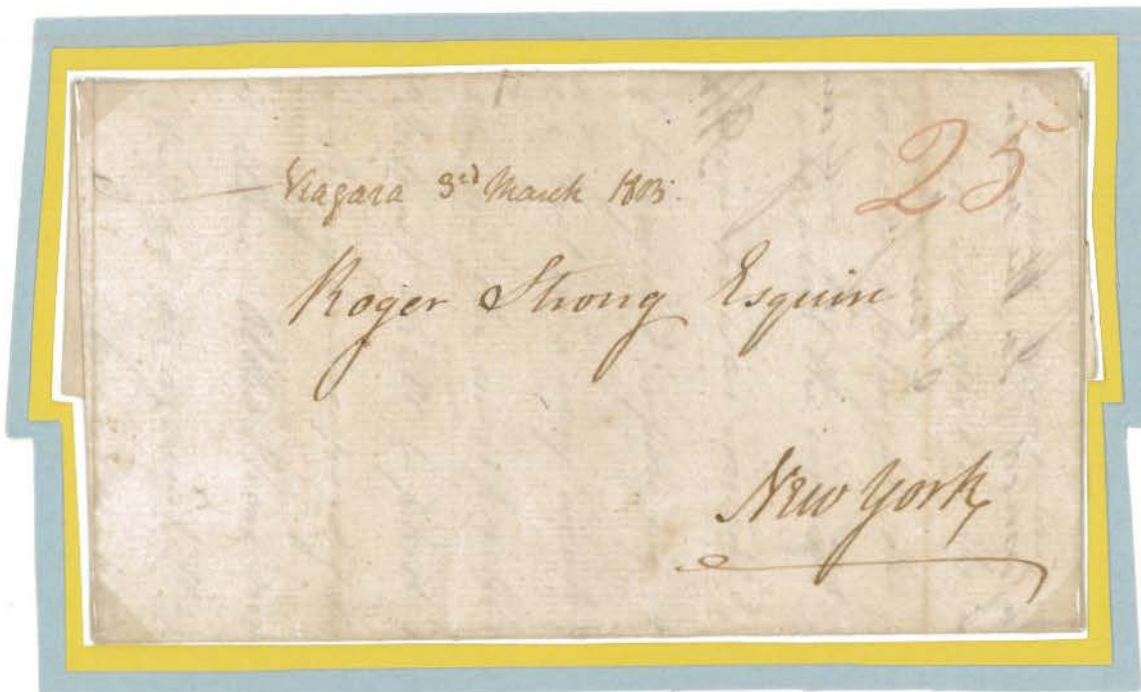 25
Niagara 3rd March 1803.
Roger Strong Esquire
New York